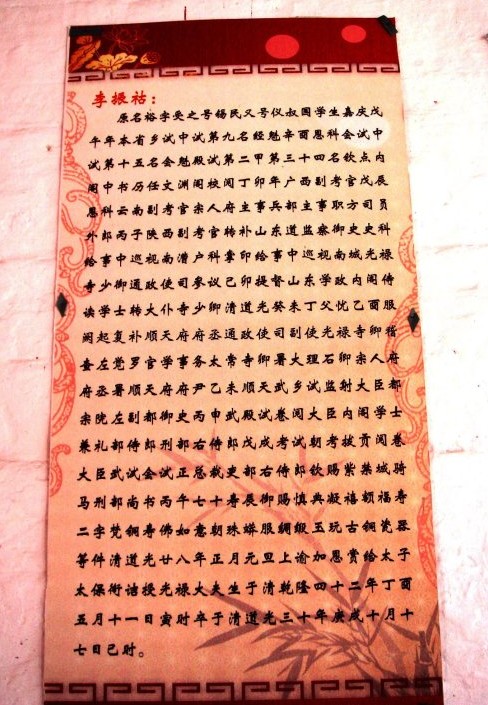 李振祜：
原名裕字受之号锡民又号仪叔国学生嘉庆戊
午年本省乡试中试第九名经魁辛酉恩科会试中
试第十五名会魁殿试第二甲第三十四名钦点内
阁中书历任文渊阁校阅丁卯年广西副考官戊辰
恩科云南副考官宗人府主事兵部主事职方司员
外郎丙子陕西副考官转补山东道监察御史史科
给事中巡视南漕户科掌印给事中巡视南城光禄
寺少御通政使司参议己卯提督山东学政内阁侍
读学士转大仆寺少卿清道光癸未丁父忧乙酉服
阕起复补顺天府府丞通政使司副使光禄寺卿稽
查左觉罗官学事务太常寺卿署大理石卿宗人府
府丞署顺天府府尹乙未顺天武乡试监射大臣都
察院左副都御史丙申武殿试卷阅大臣内阁学士
兼礼部侍郎刑部右侍郎戊戌考试朝考拔贡阅卷
大臣武试会试正总裁吏部右侍郎钦赐紫禁城骑
马刑部尚书丙午七十寿辰御赐慎典凝禧额福寿
二字梵铜寿佛如意朝珠蟒服绸缎玉玩古铜瓷器
等件清道光廿八年正月元旦上谕加恩赏给太子
太保衔诰授光禄大夫生于清乾隆四十二年丁酉
五月十一日寅时卒于清道光三十年庚戌十月十
七日巳时。